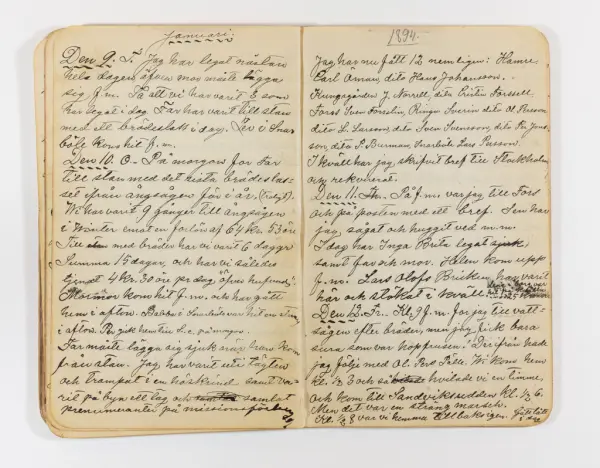 Januari.
Den 9. T. Jag har legat nästan
hela dagen, äfven mor måste lägga
sig f.m. Så att vi har varit 3 som
har legat i dag. Far har varit till stan
med ett brädeslass i dag. Lov i Snar
böle kom hit f.m.
Den 10. O- På morgon for Far
till stan med det sista brädeslas-
set ifrån ångsågen för i år.
Vi har varit 9 gånger till ångsågen
i Winter emot en förlön af 64 kr. 53 öre
Till med bräder har vi varit 6 dagar
Summa 15 dagar, och har vi således
tjenat 4 Kr. 30 öre pr dag,
Mormor kom hit f.m. och har gått
hem i afton. i Snarböle har
i afton.
Far måste lägga sig sjuk när han kom
från stan. Jag har varit ute i
och trampat i en hästhud samt va-
rit på byn ett tag och samlat
prenumeranter på
1894.
Jag har nu fått 12 nemligen: Hamre:
Carl Öman, dito Hans Johansson.
Kungsgården J. Norrell, dito Cristin Forsell.
Forss Sven Forselin, Ringvi Sverin dito Ol. Persson
dito L. Larsson, dito Sven Svensson, dito Per Jons-
son, dito P. Burman Snarböle Lars Persson.
I kväll har jag skrifvit bref till Stockholm
och rekvirerat.
Den 11. Th. På f.m. var jag till Fors
och på posten med ett bref. Sen har
jag, sågat och huggit ved m.m.
I dag har Inga Brita legat sjuk,
samt far och mor. Helen kom upp
f.m. Lars Olofs Brickén har varit
här och stökat i kväll
Den 12. Fr. Kl. 9 f.m. for jag till vatt-
sågen efter bräder, men jag fick bara
sura som var hopfrusen. Derifrån hade
jag följe med Ol. Pers Pelle. Vi kom hem
Kl. ½ 3 och så hvilade vi en timme,
och kom till Sandviksudden Kl. ½ 6.
Men det var en sträng marsch.
Kl. ½ 8 var vi hemma tillbaks igen.